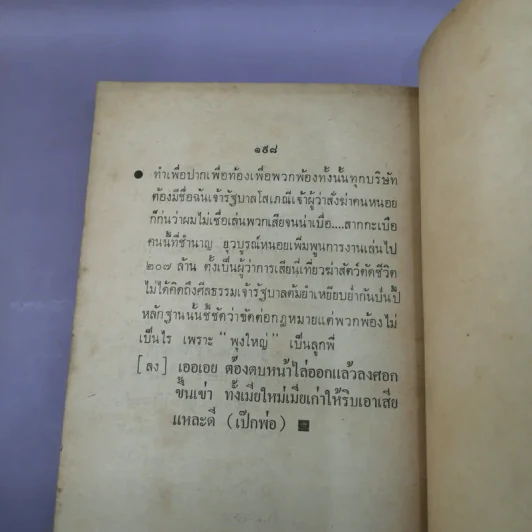 ๑๕๘
● ทำเพื่อปากเพื่อท้องเพื่อพวกพ้องทั้งนั้นทุกบริษัท
ต้องมีชื่อฉันเจ้ารัฐบาลโสเภณีเจ้าผู้ว่าสั่งฆ่าคนหนอย
ก็ก่นว่าผมไม่เชื่อเล่นพวกเสียจนน่าเบื่อ....สากกะเบือ
คนนี้ที่ชำนาญ ยุวบูรณ์หนอยเพิ่มพูนการงานเล่นไป
๒๐๗ ล้าน ตั้งเป็นผู้ว่าการเสียนี่เที่ยวฆ่าสัตว์ตัดชีวิต
ไม่ได้คิดถึงศีลธรรมเจ้ารัฐบาลคัมยำเหยียบย่ำกันป่นปี้
หลักฐานนั้นชี้ชัดว่าขัดต่อกฎหมายแต่พวกพ้องไม่
เป็นไร เพราะ "พุงใหญ่" เป็นลูกพี่
[ลง] เออเอย ต้องตบหน้าไล่ออกแล้วลงศอก
ขึ้นเข่า ทั้งเมียใหม่เมี่ยเก่าให้ริบเอาเสีย
แหละดี (เป๊กพ่อ)